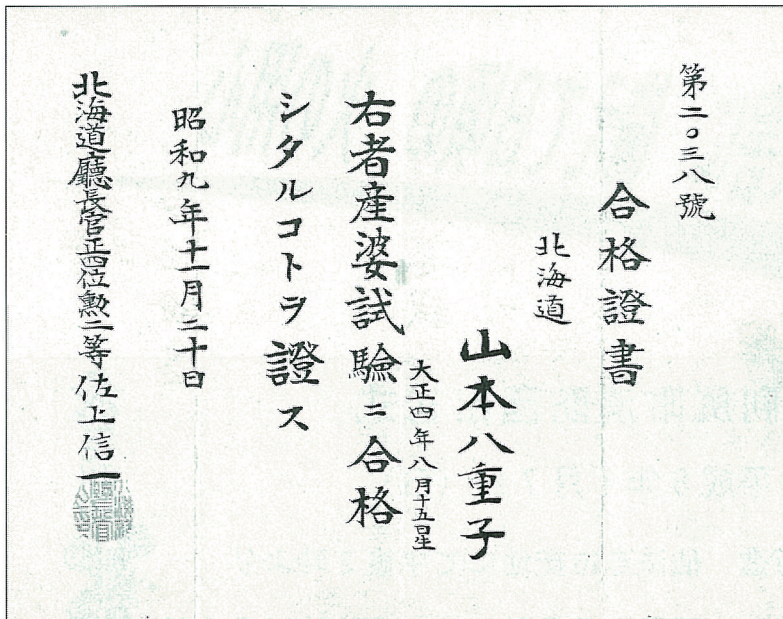 第二〇三八號
合格證書
北海道
山本八重子
大正四年八月十五日生
右者産婆試驗ニ合格
シタルコトヲ證ス
昭和九年十一月二十日
北海道廳長官正四位勲二等佐上信一